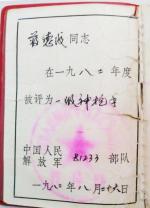 同志
在一九八二年度
被评为一级神枪手
中国人民
解放军 81233 部队
一九八二年八月二十六日